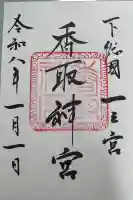 下総國 一之宮
香取神宮
令和八年一月一日